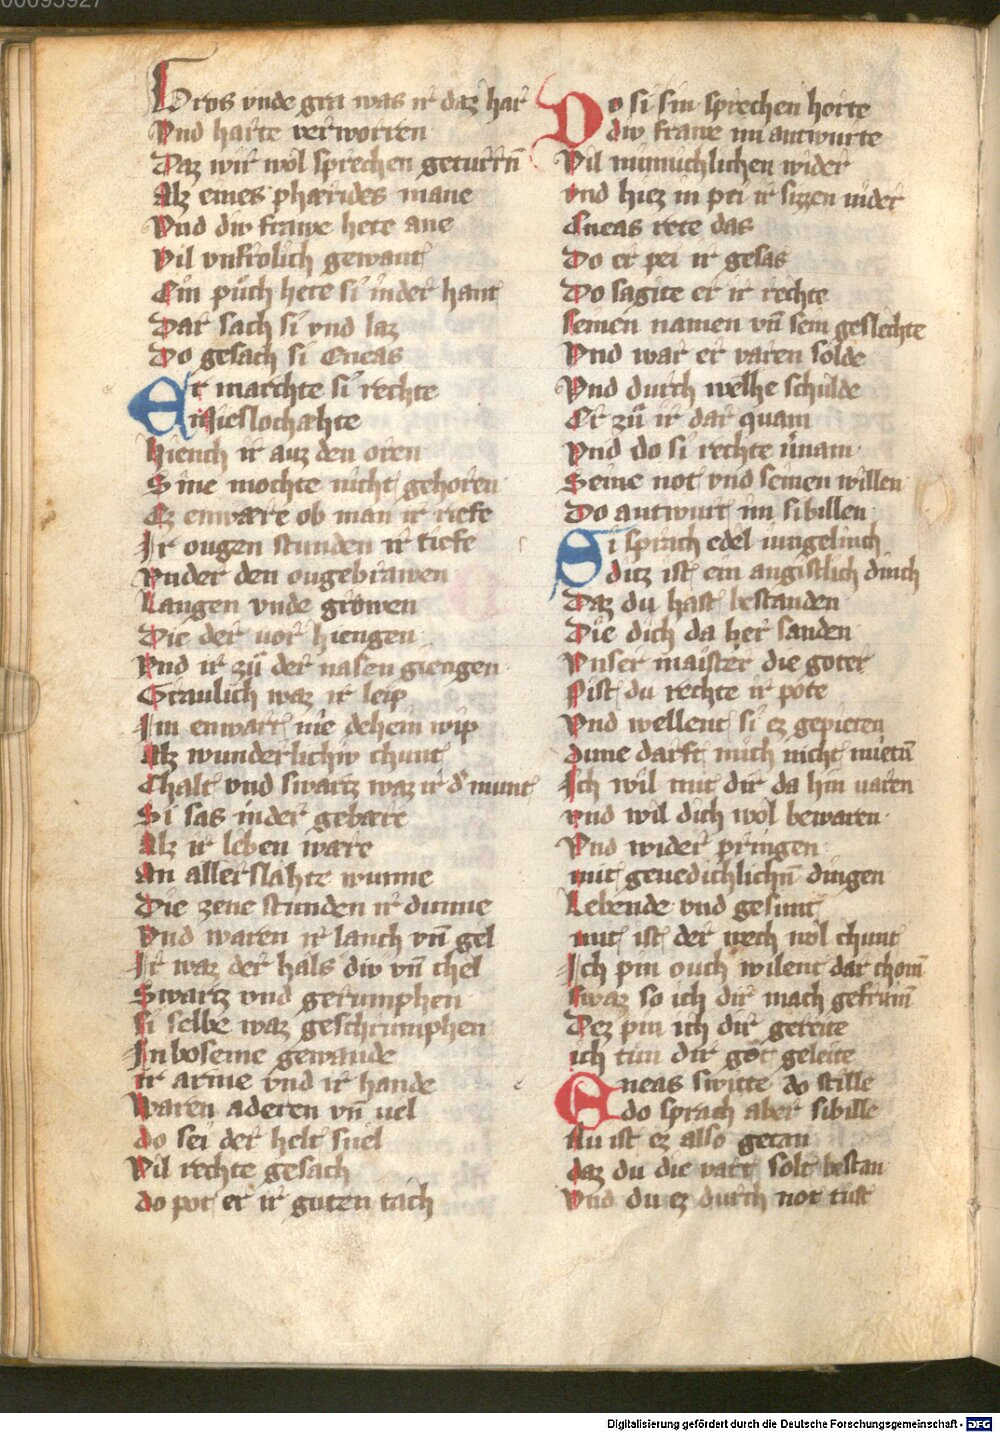 00095927
Gros vnde gra was ir daz har
Vnd harte verworren
Daz wir wol sprechen geturrn̄
Alz eines pharides mane
Vnd div frawe hete ane
Vil vnfrolich gewant
Ein puͦch hete si in der hant
Dar sach si vnd laz
Do gesach si Eneas
Er marchte si rechte
Mieslochæhte
Hiench ir auz den oren
Sine mochte nicht gehoren
Ez enwære ob man ir riefe
Ir ougen stunden ir tiefe
Vnder den ougebrawen
Langen vnde growen
Die der uor hiengen
Vnd ir zuͦ der nasen giengen
Graulich waz ir leip
Im enwart nie dehein wip
Alz wunderlichiv chunt
Chalt vnd swartz waz ir d' munt
Si sas in der gebære
Alz ir leben wære
An allerslahte wunne
Die zene stunden ir dunne
Vnd waren ir lanch vn̄ gel
Ir waz der hals div vn̄ chel
Swartz vnd gerumphen
si selbe waz geschrumphen
In boseme gewande
ir arme vnd ir hande
Waren aderen vn̄ uel
do sei der helt snel
Vil rechte gesach
do pot er ir guten tach
Do si sin sprechen horte
div frawe im antwurte
Vil minnichlichen wider
vnd hiez in pei ir sizzen nider
Eneas tete das
Do er pei ir gesas
Do sagite er ir rechte
seinen namen vn̄ sein geslechte
Vnd war er varen solde
Vnd durch welhe schulde
Er zuͦ ir dar quam
Vnd do si rechte uͥnam
Seine not vnd seinen willen
Do antwurt im sibillen
Si sprach edel iungelinch
ditz ist ein angistlich dinch
Daz du hast bestanden
Die dich da her sanden
Vnser maister die goter
Pist du rechte ir pote
Vnd wellent si ez gepieten
dune darft mich nicht mietn̄
Ich wil mit dir da hin uaren
vnd wil dich wol bewaren
Vnd wider pringen
mit genedichlichn̄ dingen
Lebende vnd gesunt
mir ist der wech wol chunt
Ich pin ouch wilent dar chom̄
swaz so ich dir mach gefrum̄
Dez pin ich dir gereite
ich tun dir got geleite
Eneas switte do stille
do sprach aber sibille
Nu ist ez also getan
daz du die vart solt bestan
Vnd du ez durch not tust
Digitalisierung gefördert durch die Deutsche Forschungsgemeinschaft - DFG